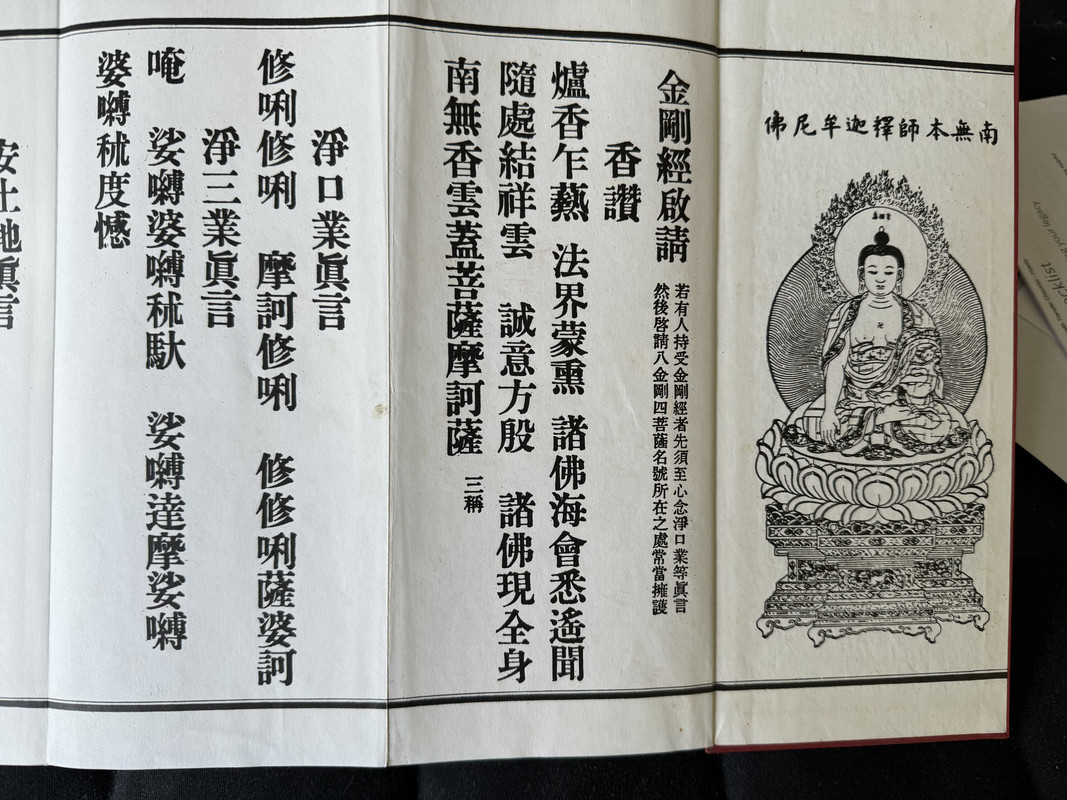 南無本師釋迦牟尼佛
金剛經啟請
若有人持受金剛經者先須至心念淨口業等眞言
然後啓請八金剛四菩薩名號所在之處常當擁護
香讚
爐香乍爇 法界蒙熏 諸佛海會悉遙聞
隨處結祥雲 誠意方殷 諸佛現全身
南無香雲蓋菩薩摩訶薩 三稱
淨口業眞言
修唎修唎 摩訶修唎 修修唎薩婆訶
淨三業眞言
唵 娑嚩婆嚩秫馱 娑嚩達摩娑嚩
婆嚩秫度憾
安土地眞言
cklist
your legacy